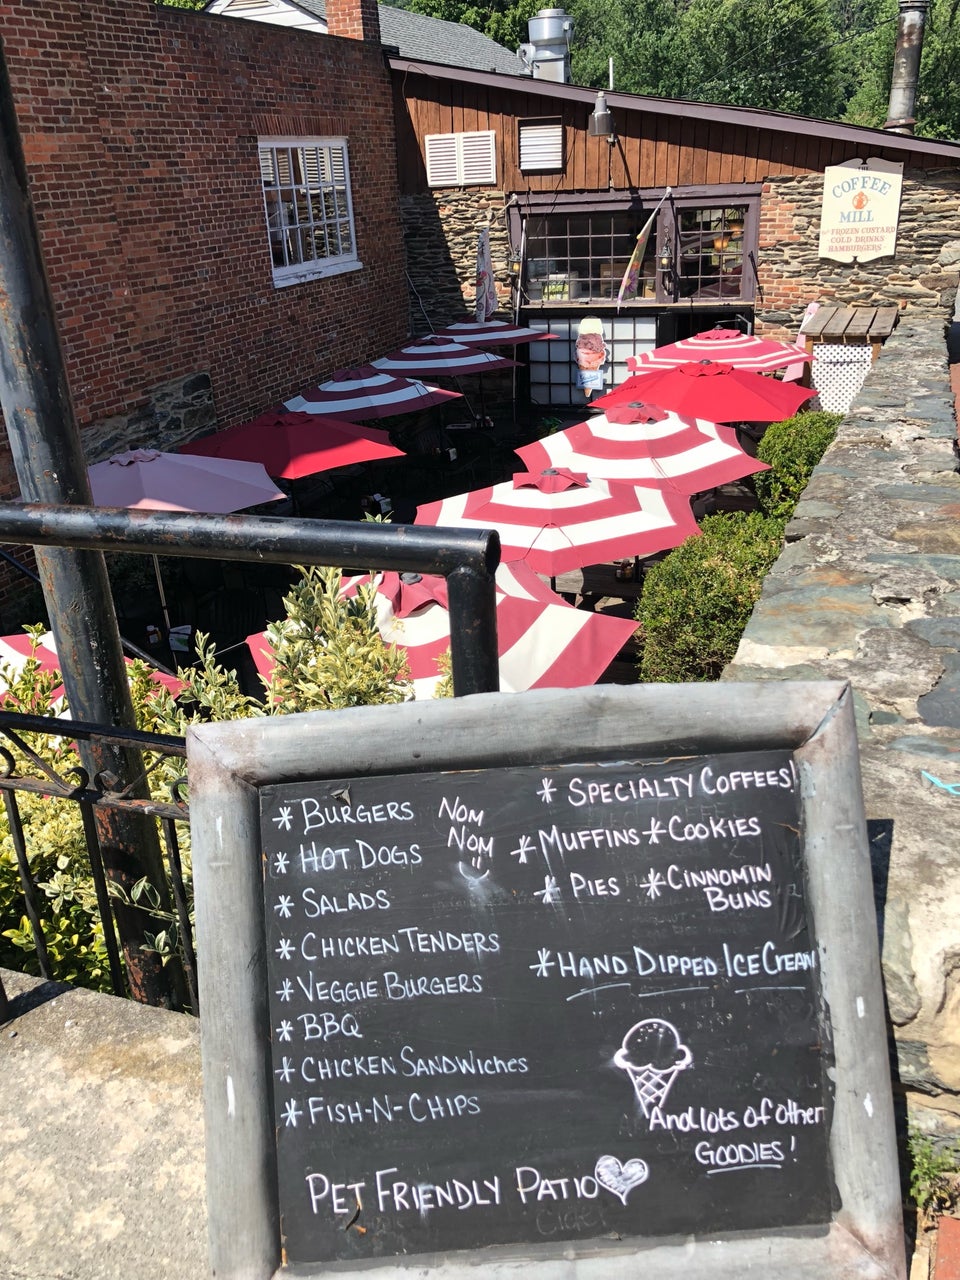 THE
COFFEE
MILL
FROZEN CUSTARD
COLD DRINKS
HAMBURGERS
* BURGERS
* HOT DOGS
* SALADS
* CHICKEN TENDERS
* VEGGIE BURGERS
* BBQ
* CHICKEN SANDWICHES
* FISH-N-CHIPS
NOM
NOM
* SPECIALTY COFFEES!
* MUFFINS * COOKIES
* PIES * CINNOMIN
BUNS
* HAND DIPPED ICE CREAM
And lots of other
GOODIES!
PET FRIENDLY PATIO